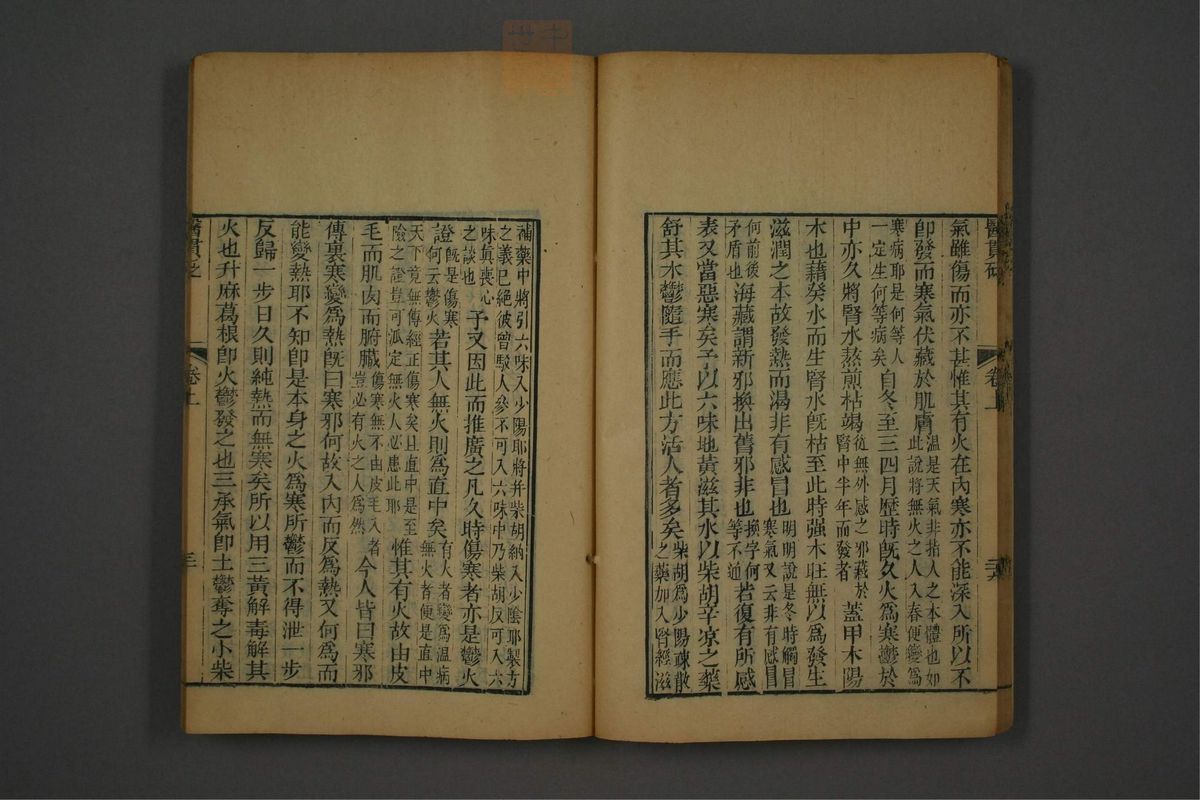 醫貫砭
卷上
氣雖傷而亦不甚惟其有火在內寒亦不能深入所以不
卽發而寒氣伏藏於肌膚溫是天氣非指人之本體也如此說將無火之人入春便變爲
寒病耶是何等人一定生何等病矣自冬至三四月歷時旣久火爲寒鬱於
中亦久將腎水熬煎枯竭從無外感之邪藏於腎中半年而發者蓋甲木陽
木也藉癸水而生腎水旣枯至此時强木旺無以爲發生
滋潤之本故發熱而渴非有感冒也明明說是冬時觸冒寒氣又云非有感冒
何前後矛盾也海藏謂新邪換出舊邪非也換字何等不通若復有所感
表又當惡寒矣予以六味地黃滋其水以柴胡辛凉之藥
舒其木鬱隨手而應此方活人者多矣柴胡爲少陽疎散之藥加入腎經滋
補藥中將引六味入少陽耶將幷柴胡納入少陰耶製方之義已絕彼曾駁人參不可入六味中乃柴胡反可入六
味眞喪心之談也予又因此而推廣之凡久時傷寒者亦是鬱火
證旣是傷寒何云鬱火若其人無火則爲直中矣有火者變爲溫病無火者便是直中
天下竟無傳經正傷寒矣且直中是至險之證豈可派定無火人必患此耶惟其有火故由皮
毛而肌肉而腑臟傷寒無不由皮毛入者豈必有火之人爲然今人皆曰寒邪
傳裏寒變爲熱旣曰寒邪何故入內而反爲熱又何爲而
能變熱耶不知卽是本身之火爲寒所鬱而不得泄一步
反歸一步日久則純熱而無寒矣所以用三黃解毒解其
火也升麻葛根卽火鬱發之也三承氣卽土鬱奪之小柴
醫貫
卷上